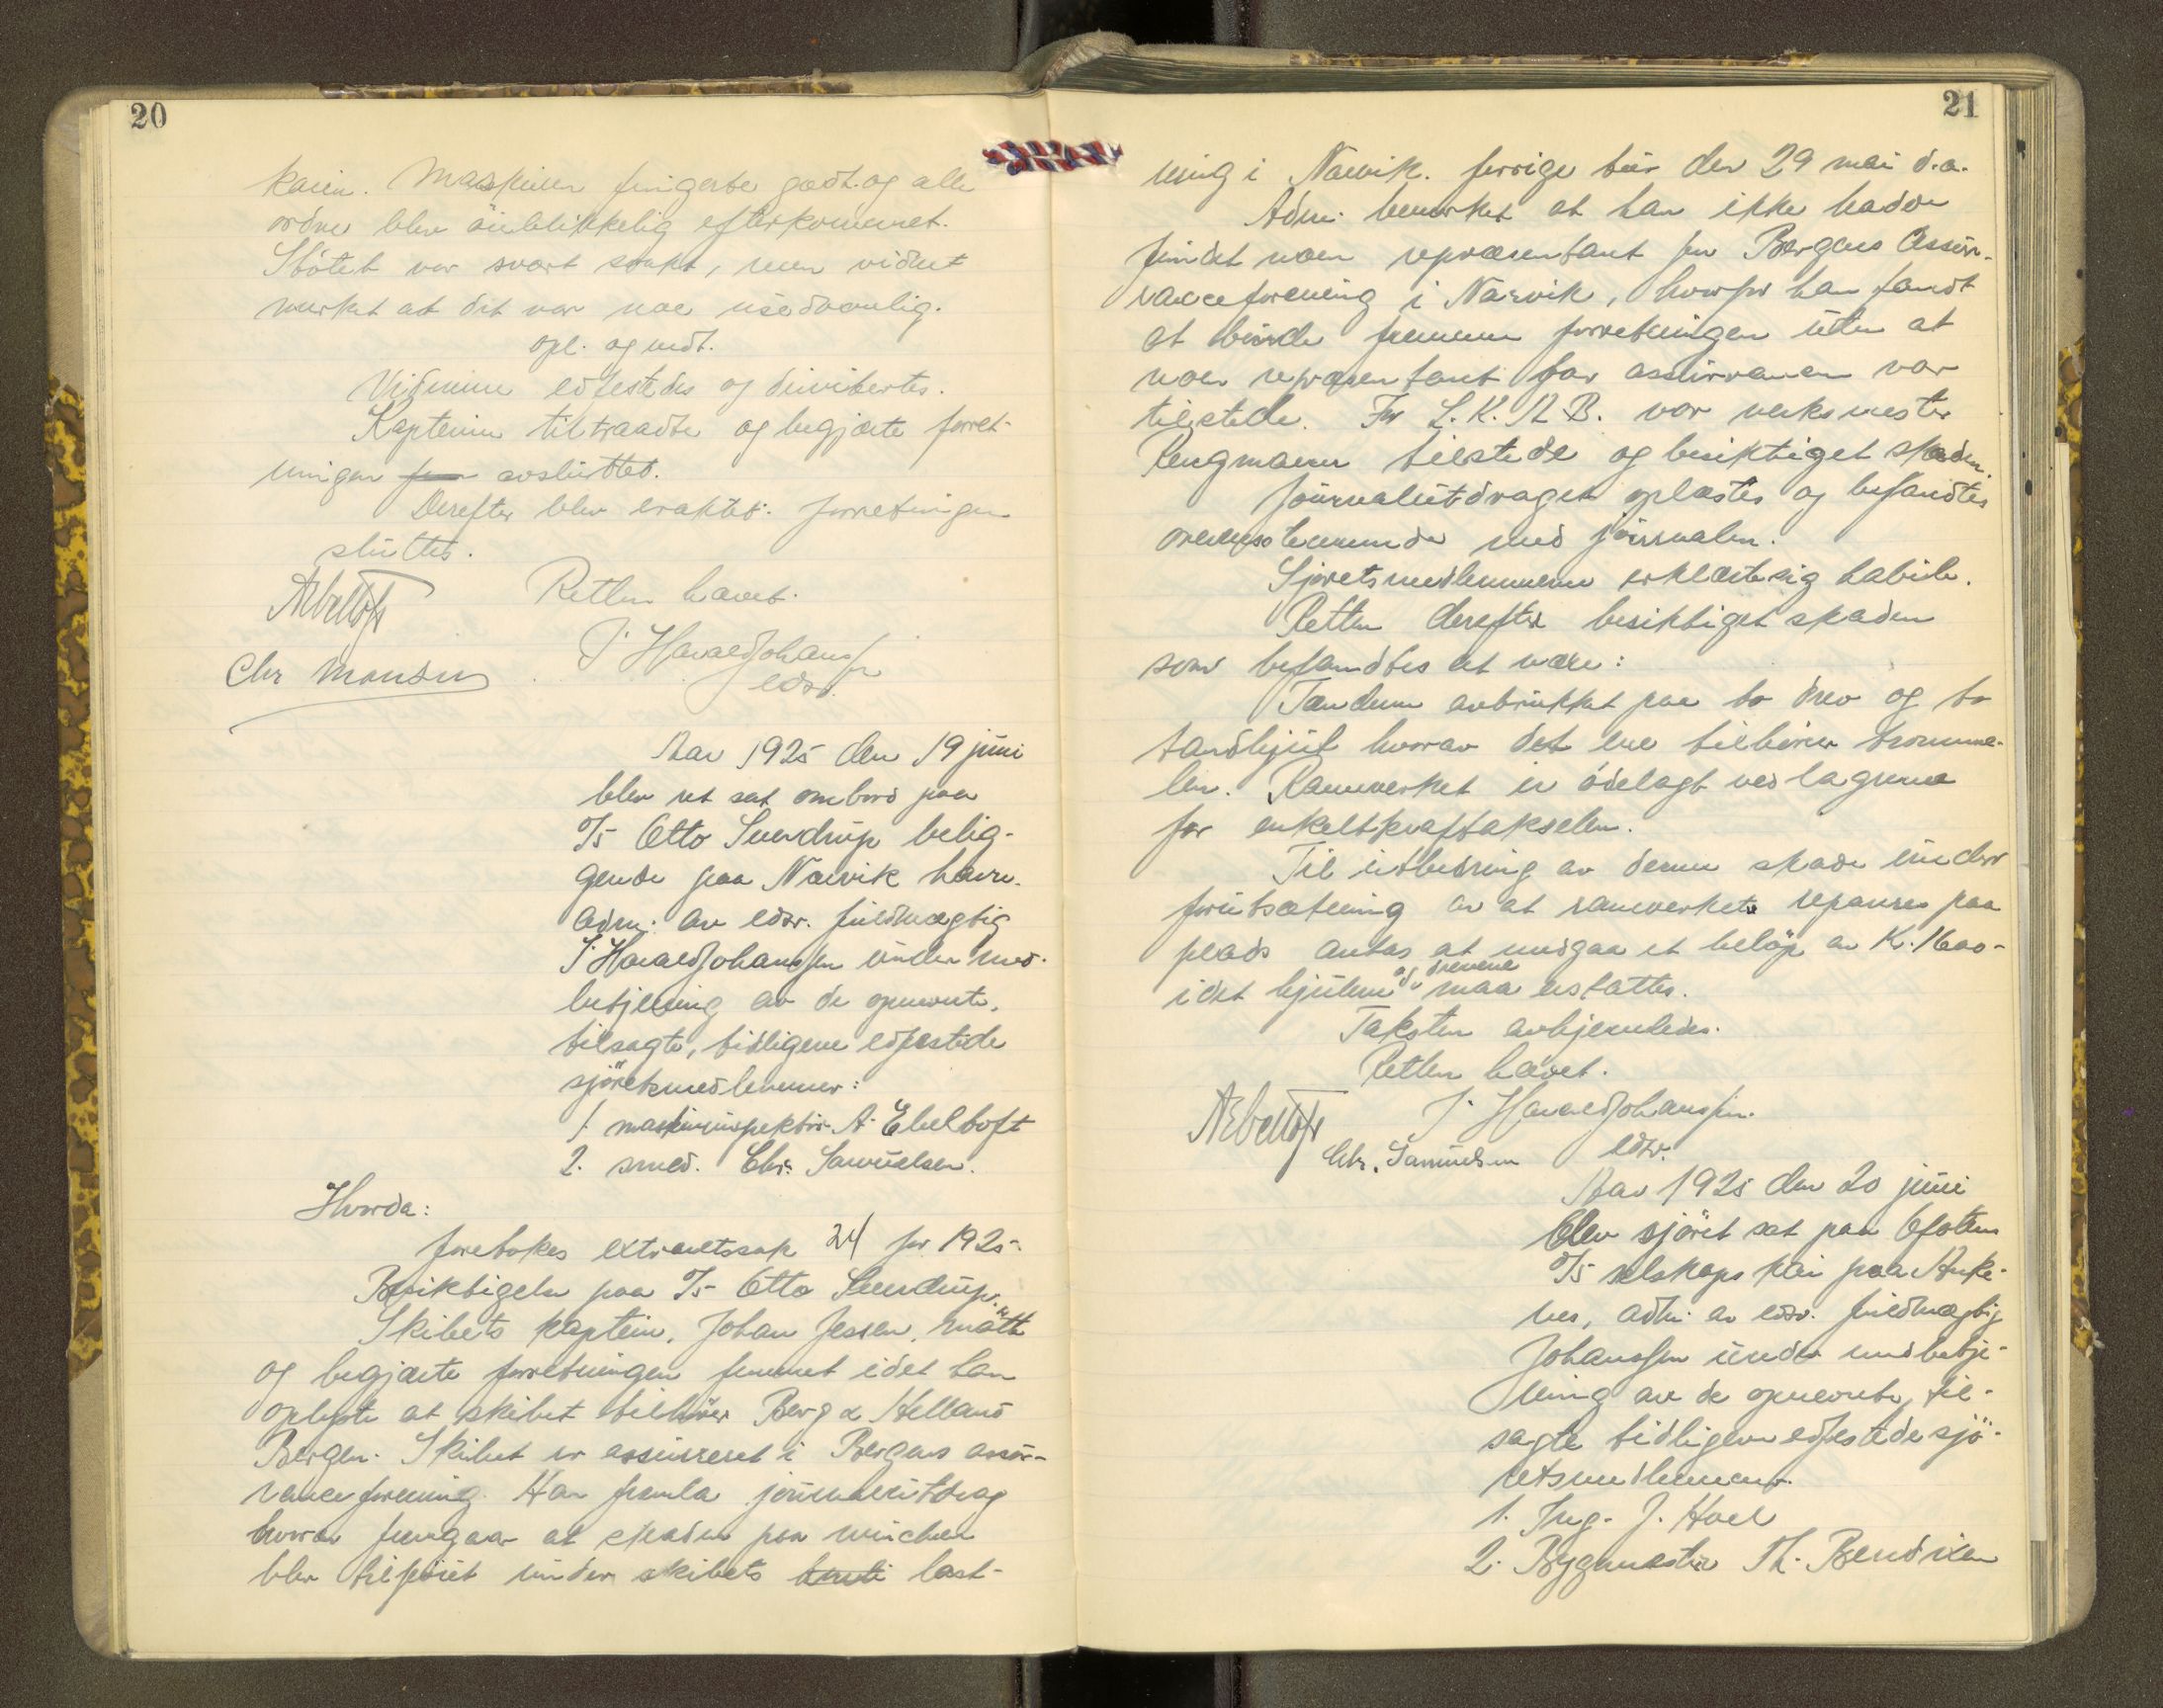 20
kaien. Maskinen fungerte godt og alle
ordrer blev öieblikkelig efterkommet.
Stötet var svart svakt, men vidnet
merket at det var noe usedvanlig.
opl. og vedt.
Vidnene edfestedes og dimitertes.
Kapteinen tiltraadte og begjærte forret-
ningen avsluttet.
Derefter blev eraktet: forretningen
sluttet.
Retten hævet.
AEbeltoft
J. Harald Johanssen
edsv.
Chr Monsen
Aar 1925 den 19 juni
blev ret sat ombord paa
D/S Otto Sverdrup belig-
gende paa Narvik havn.
Adm. av edsv. fuldmægtig
J. Harald Johanssen under med-
betjening av de opnævnte,
tilsagte, tidligere edfestede
sjöretsmedlemmer:
1. maskininspektör A. Ebeltoft
2. smed. Chr. Samuelsen.
Hvorda:
foretokes extraretssak 24 for 1925.
Besiktigelse paa D/S Otto Sverdrup.
Skibets kaptein, Johan Jessen, mötte
og begjærte forretningen fremmet idet han
oplyste at skibet tilhörer Berg & Helland
Bergen. Skibet er assureret i Bergens assur-
ranceforening. Han fremla journalutdrag
hvorav fremgaar at skaden paa winchen
blev tilföiet under skibets last-
21
ning i Narvik. forrige tur den 29 mai d.a.
Adm. bemerket at han ikke hadde
fundet noen repræsentant for Bergens Assur-
ranceforening i Narvik, hvorfor han fandt
at burde fremme forretningen uten at
noen repræsentant for assurancen var
tilstede. For L.K.A.B. var verksmester
Rengmann tilstede og besiktiget skaden.
Journalutdraget oplæstes og befandtes
overensstemmende med journalen.
Sjöretsmedlemmene erklærte sig habile.
Retten derefter besiktiget skaden
som befandtes at være:
Tændene avbrukket paa to drev og to
tandhjul hvorav det ene tilhörer tromme-
len. Rammeverket er ödelagt ved lagrene
for enkeltkraftakselen.
Til utbedring av denne skade under
forutsætning av at rammeverket repareres paa
plads antas at medgaa et belöp av Kr. 1600-
idet hjulene og drevene maa erstattes.
Taksten avhjemledes.
Retten hævet.
AEbeltoft
J. Harald Johanssen.
edsv.
Chr. Samuelsen
Aar 1925 den 20 juni
blev sjöret sat paa Ofotens
D/S selskaps kai paa Anke-
nes, adm. av edsv. fuldmægtig
Johanssen under medbetje-
ning av de opnævnte, til-
sagte tidligere edfestede sjö-
retsmedlemmer.
1. Ing. J. Hoel
2. Bygmester Th. Bendixen